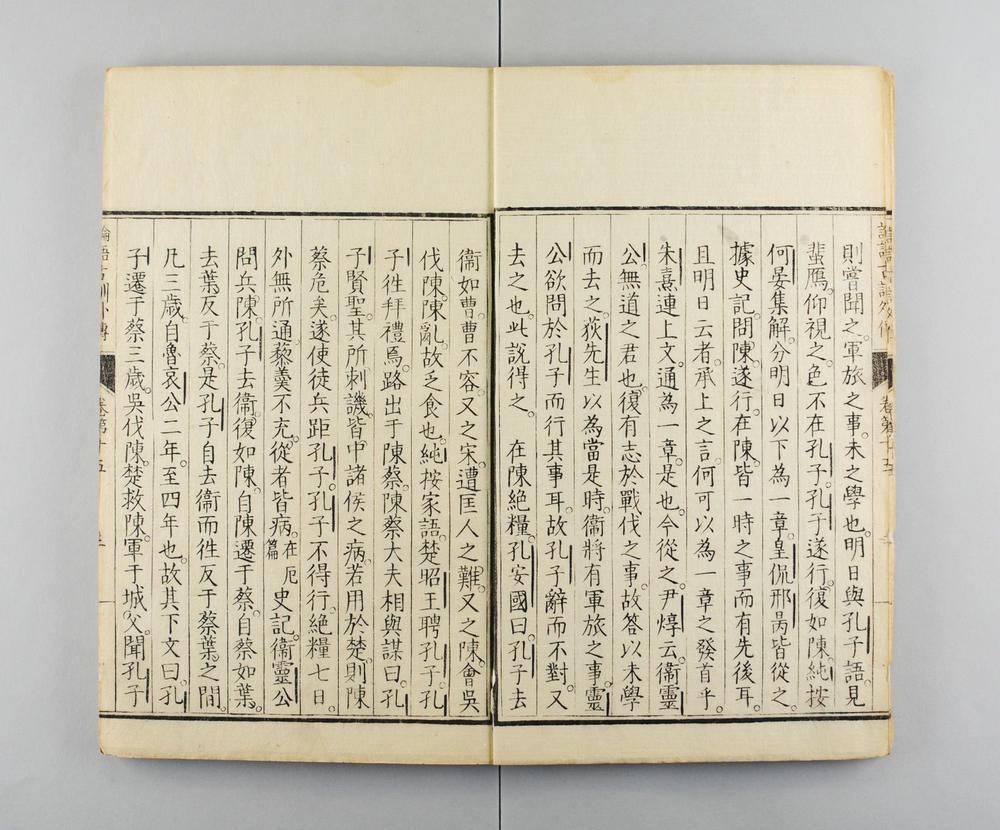 則嘗聞之。軍旅之事。未之學也。明日與孔子語。見
蜚鴈。仰視之。色不在孔子。孔子遂行。復如陳。純按
何晏集解。分明日以下為一章。皇侃邢昺皆從之。
據史記。問陳。遂行。在陳。皆一時之事而有先後耳。
且明日云者。承上之言。何可以為一章之發首乎。
朱熹連上文。通為一章。是也。今從之。尹焞云。衞靈
公無道之君也。復有志於戰伐之事。故答以未學
而去之。荻先生以為當是時。衞將有軍旅之事。靈
公欲問於孔子而行其事耳。故孔子辭而不對。又
去之也。此說得之。 在陳絶糧。孔安國曰。孔子去
衞如曹。曹不容。又之宋。遭匡人之難。又之陳。會吳
伐陳。陳亂。故乏食也。純按家語。楚昭王聘孔子。孔
子徃拜禮焉。路出于陳蔡。陳蔡大夫相與謀曰。孔
子賢聖。其所刺譏。皆中諸侯之病。若用於楚。則陳
蔡危矣。遂使徒兵距孔子。孔子不得行。絶糧七日。
外無所通。藜羹不充。從者皆病。在厄篇 史記。衞靈公
問兵陳。孔子去衞。復如陳。自陳遷于蔡。自蔡如葉。
去葉反于蔡。是孔子自去衞而徃反于蔡葉之間。
凡三歲。自魯哀公二年。至四年也。故其下文曰。孔
子遷于蔡三歲。吳伐陳。楚救陳。軍于城父。聞孔子
論語古訓外傳
卷第十五